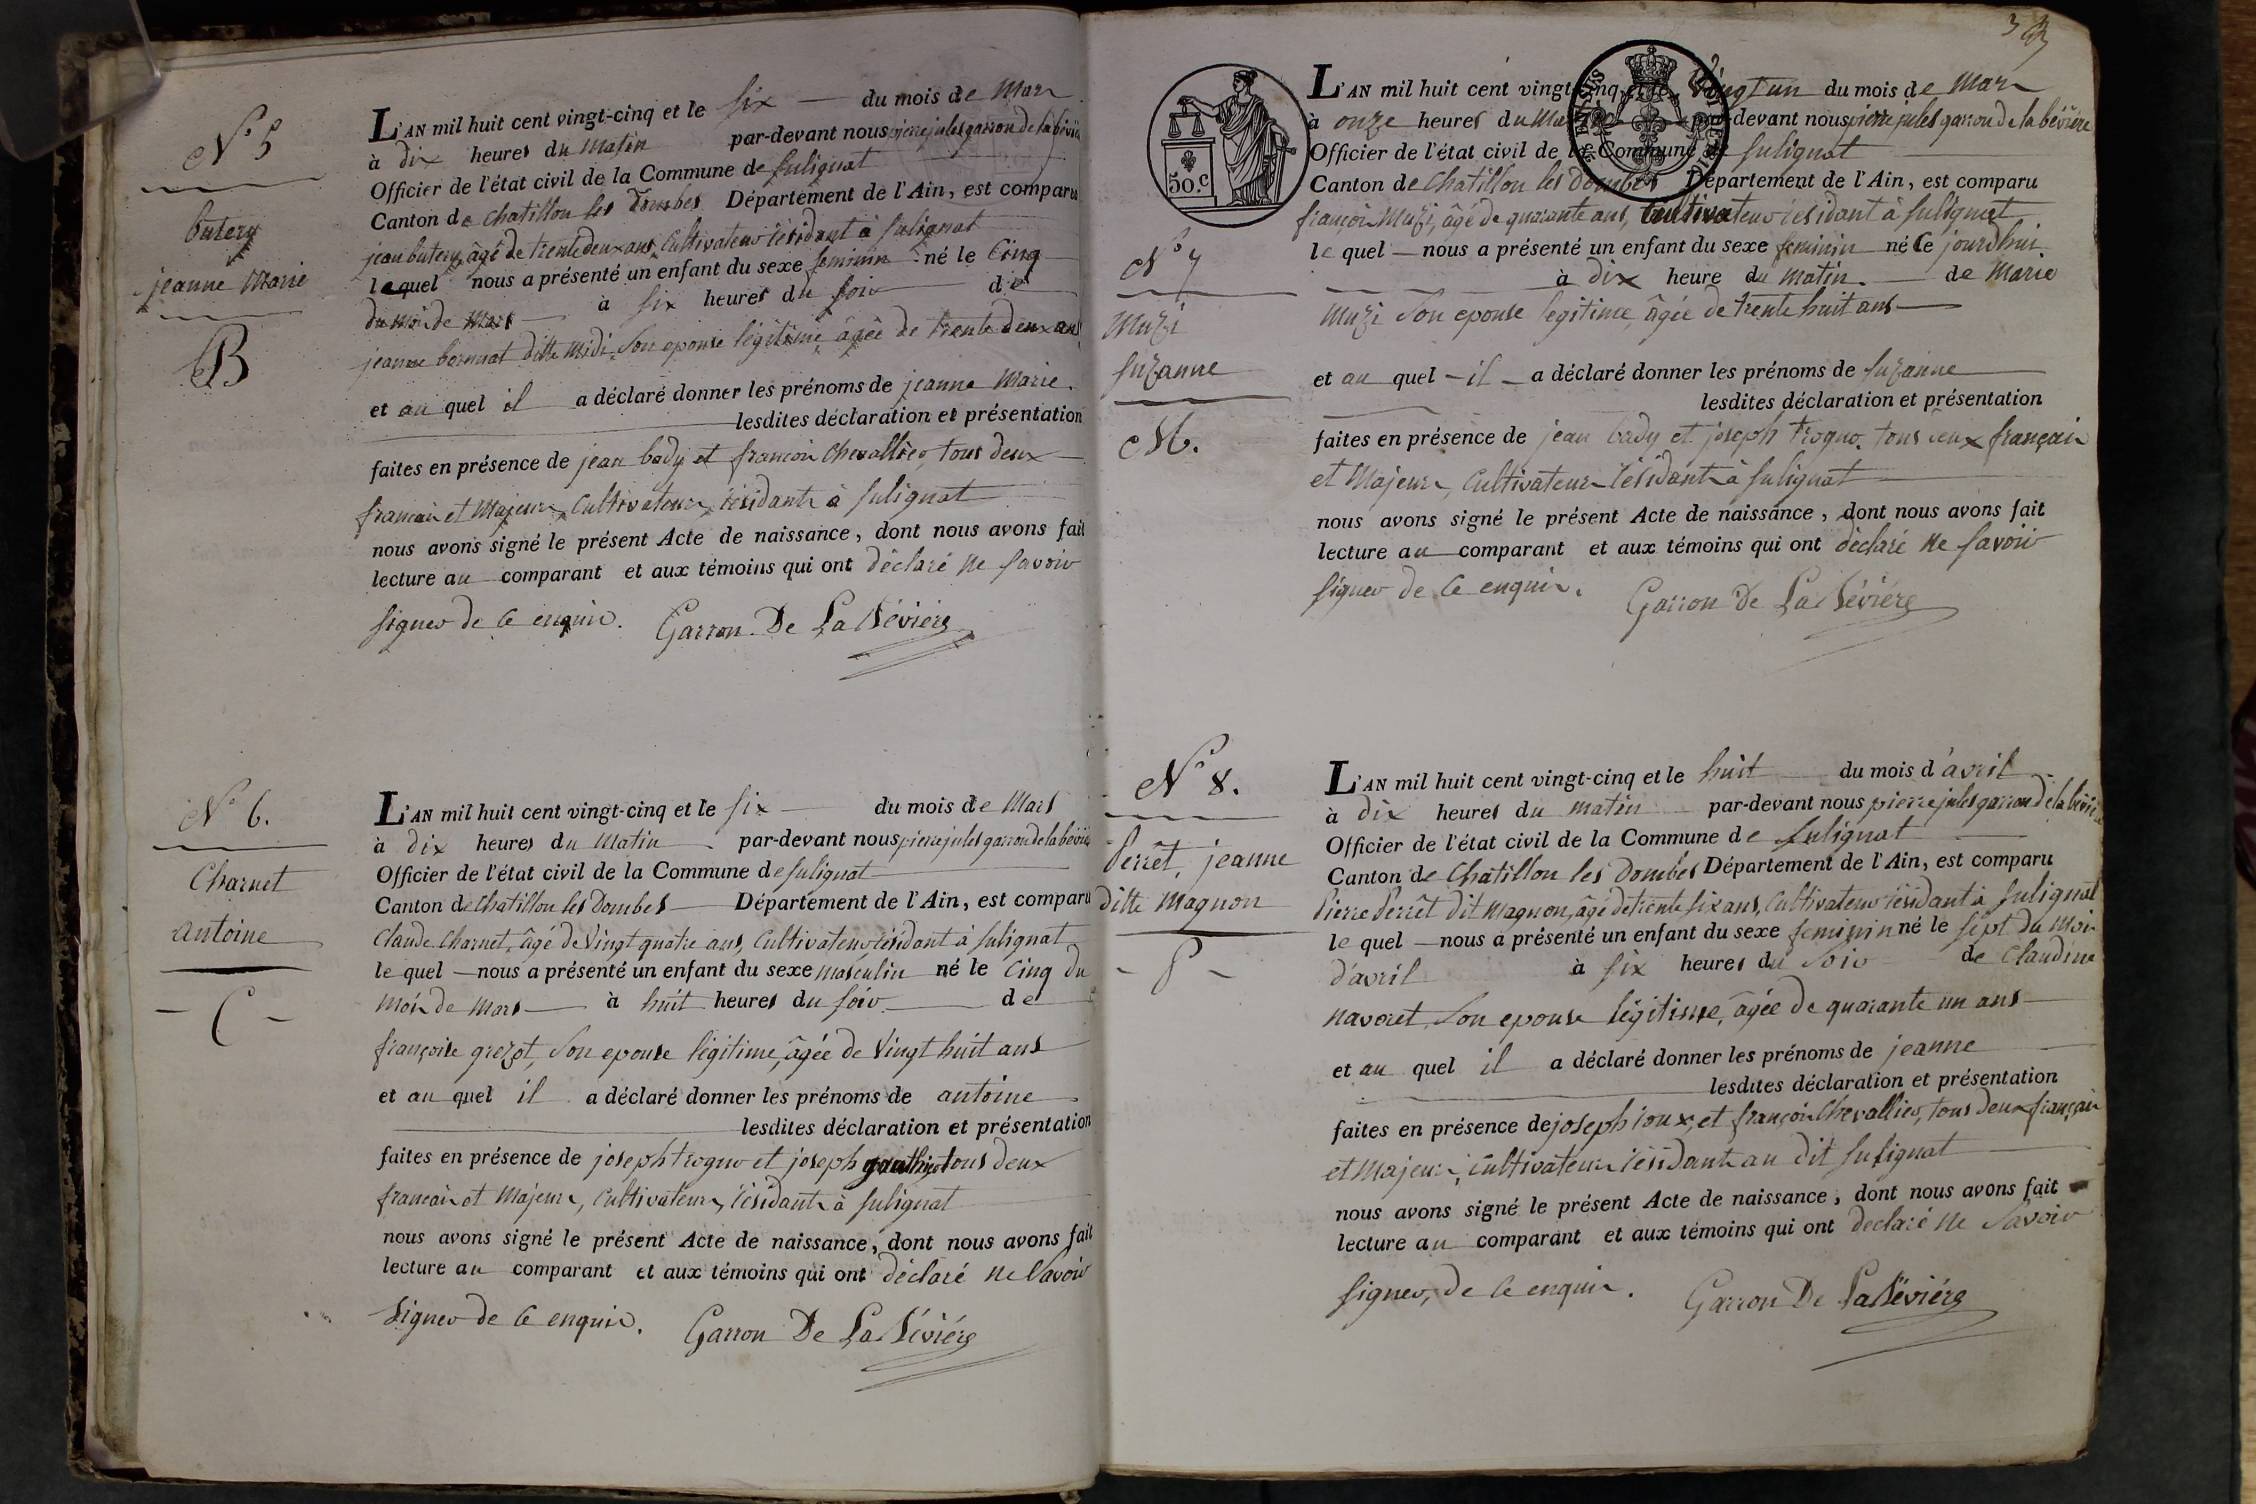 N° 5
butery
jeanne Marie
B
L'AN mil huit cent vingt-cinq et le six du mois de Mars
à dix heures du Matin par-devant nous pierre jules garron de la bévière
Officier de l'état civil de la Commune de Sulignat
Canton de Chatillon les Dombes Département de l'Ain, est comparu
jean butery, âgé de trente deux ans, Cultivateur résidant à Sulignat
lequel nous a présenté un enfant du sexe feminin né le Cinq
du mois de Mars à six heures du soir de
jeanne ditte Midi, Son epouse légitime, âgée de trente deux ans
et au quel il a déclaré donner les prénoms de jeanne Marie.
lesdites déclaration et présentation
faites en présence de jean bady et francois Chevallier, tous deux
francais et Majeurs, Cultivateurs, résidants à Sulignat
nous avons signé le présent Acte de naissance, dont nous avons fait
lecture au comparant et aux témoins qui ont déclaré ne savoir
signer de ce enquis. Garron De La Bévière
N° 6.
Charnet
antoine
- C -
L'AN mil huit cent vingt-cinq et le six du mois de Mars
à dix heures du Matin par-devant nous pierre jules garron de la bévière
Officier de l'état civil de la Commune de Sulignat
Canton de Chatillon les Dombes Département de l'Ain, est comparu
Claude Charnet, âgé de Vingt quatre ans, Cultivateur résidant à Sulignat
le quel nous a présenté un enfant du sexe masculin né le Cinq du
mois de Mars à huit heures du soir de
françoise grezot, Son epouse légitime, âgée de Vingt huit ans
et au quel il a déclaré donner les prénoms de antoine
lesdites déclaration et présentation
faites en présence de joseph trogno et joseph tous deux
francais et Majeurs, Cultivateurs, résidants à Sulignat
nous avons signé le présent Acte de naissance, dont nous avons fait
lecture au comparant et aux témoins qui ont déclaré ne Savoir
Signer de ce enquis. Garron De La Bévière
3
50.C
N° 7
Muzi
Suzanne
M.
L'AN mil huit cent vingt-cinq et le Vingt un du mois de Mars
à onze heures du Matin par-devant nous pierre jules garron de la bévière
Officier de l'état civil de la Commune de Sulignat
Canton de Chatillon les Dombes Département de l'Ain, est comparu
françois Muzi, âgé de quarante ans, Cultivateur résidant à Sulignat
le quel nous a présenté un enfant du sexe feminin né Ce jourdhui
à dix heure du Matin. de Marie
Muzi Son epouse légitime, âgée de trente huit ans
et au quel il a déclaré donner les prénoms de Suzanne
lesdites déclaration et présentation
faites en présence de jean bady et joseph trogno, tous deux français
et Majeurs, Cultivateurs résidants à Sulignat
nous avons signé le présent Acte de naissance, dont nous avons fait
lecture au comparant et aux témoins qui ont déclaré ne savoir
signer de ce enquis. Garron De La Bévière
N° 8.
Perrêt, jeanne
ditte Magnon
- P -
L'AN mil huit cent vingt-cinq et le huit du mois d'avril
à dix heures du matin par-devant nous pierre jules garron de la bévière
Officier de l'état civil de la Commune de Sulignat
Canton de Chatillon les Dombes Département de l'Ain, est comparu
Pierre Perrêt dit Magnon, âgé de trente six ans, Cultivateur résidant à Sulignat
le quel nous a présenté un enfant du sexe feminin né le sept du Mois
d'avril à six heures du Soir de Claudine
navoret, Son epouse légitime, âgée de quarante un ans
et au quel il a déclaré donner les prénoms de jeanne
lesdites déclaration et présentation
faites en présence de joseph roux, et françois Chevallier, tous deux français
et Majeurs, Cultivateurs résidants au dit Sulignat
nous avons signé le présent Acte de naissance, dont nous avons fait
lecture au comparant et aux témoins qui ont declaré ne Savoir
signer, de ce enquis. Garron De La Bévière